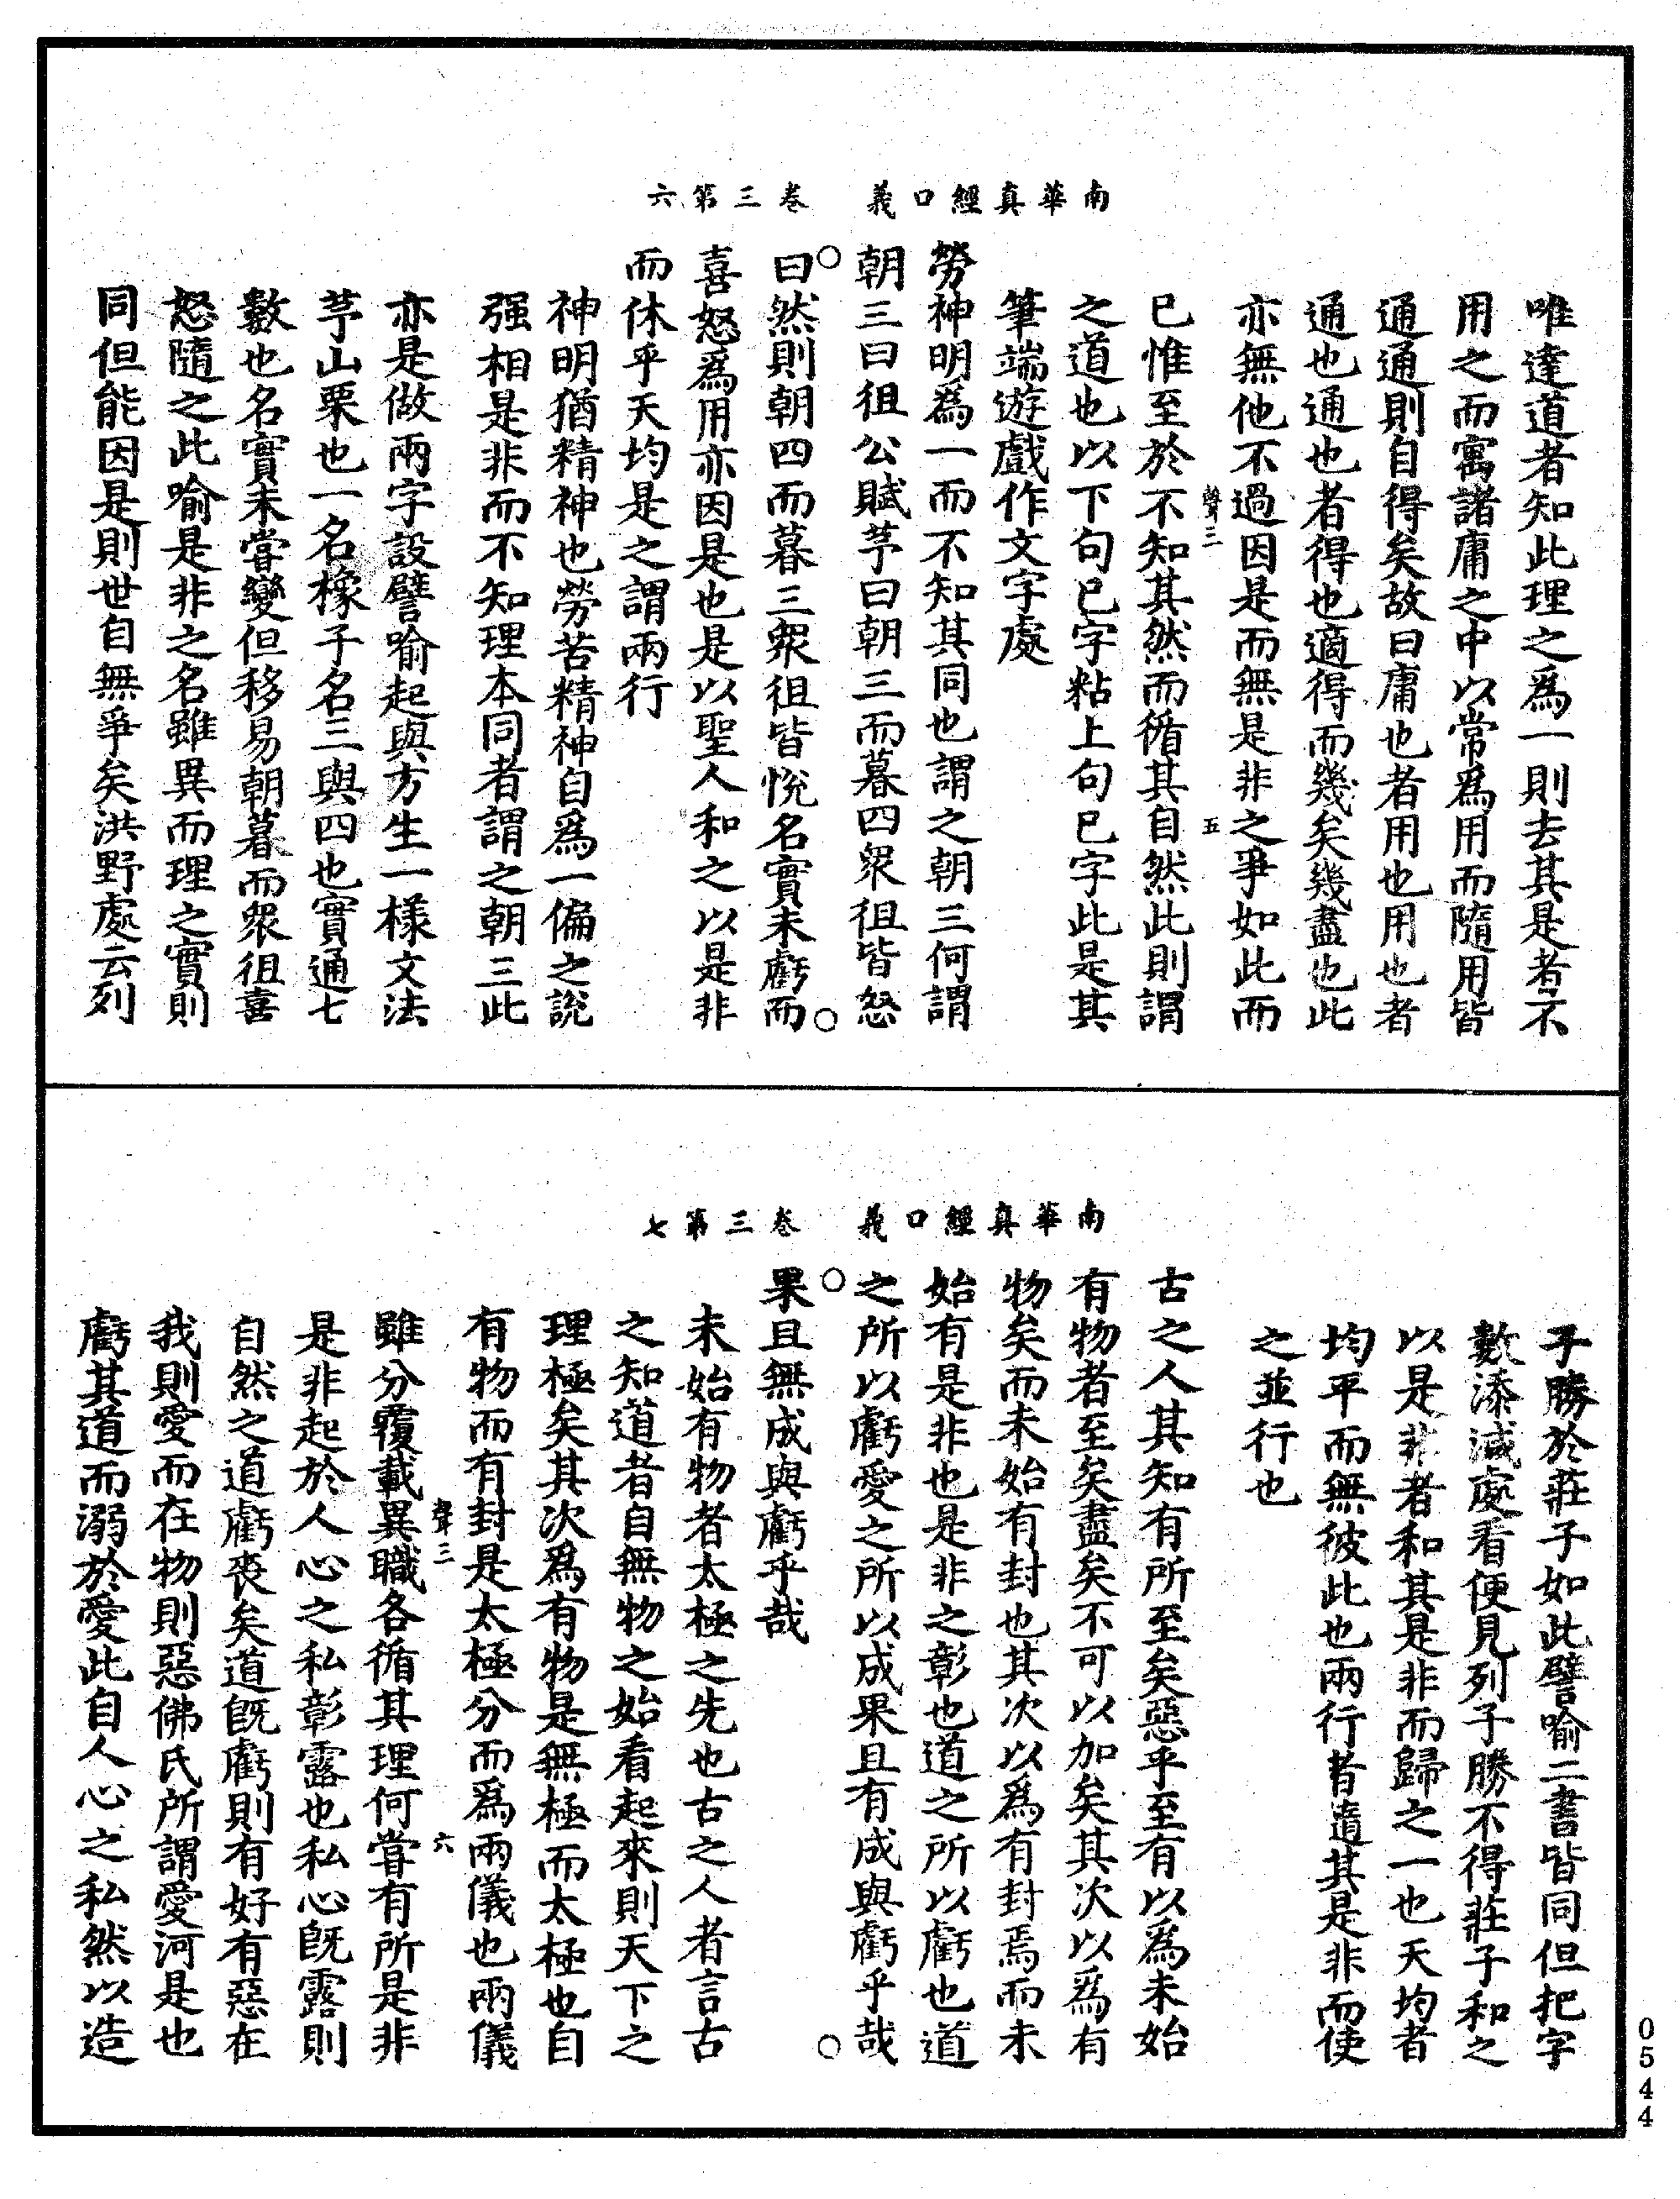 南華真經口義　卷三第六
唯達道者知此理之爲一則去其是者不
用之而寓諸庸之中以常爲用而隨用皆
通通則自得矣故曰庸也者用也用也者
通也通也者得也適得而幾矣幾盡也此
亦無他不過因是而無是非之爭如此而
聲三　五
已惟至於不知其然而循其自然此則謂
之道也以下句已字粘上句已字此是其
筆端遊戲作文字處
勞神明爲一而不知其同也謂之朝三何謂
朝三曰狙公賦芧曰朝三而暮四衆狙皆怒
曰然則朝四而暮三衆狙皆悅名實未虧而
喜怒爲用亦因是也是以聖人和之以是非
而休乎天均是之謂兩行
神明猶精神也勞苦精神自爲一偏之說
强相是非而不知理本同者謂之朝三此
亦是做兩字設譬喻起與方生一樣文法
芧山栗也一名橡子名三與四也實通七
數也名實未嘗變但移易朝暮而衆狙喜
怒隨之此喻是非之名雖異而理之實則
同但能因是則世自無爭矣洪野處云列
南華真經口義　卷三第七
子勝於莊子如此譬喻二書皆同但把字
數添減處看便見列子勝不得莊子和之
以是非者和其是非而歸之一也天均者
均平而無彼此也兩行者隨其是非而使
之並行也
古之人其知有所至矣惡乎至有以爲未始
有物者至矣盡矣不可以加矣其次以爲有
物矣而未始有封也其次以爲有封焉而未
始有是非也是非之彰也道之所以虧也道
之所以虧愛之所以成果且有成與虧乎哉
果且無成與虧乎哉
未始有物者太極之先也古之人者言古
之知道者自無物之始看起來則天下之
理極矣其次爲有物是無極而太極也自
有物而有封是太極分而爲兩儀也兩儀
聲三　六
雖分覆載異職各循其理何嘗有所是非
是非起於人心之私彰露也私心旣露則
自然之道虧喪矣道旣虧則有好有惡在
我則愛而在物則惡佛氏所謂愛河是也
虧其道而溺於愛此自人心之私然以造
0544